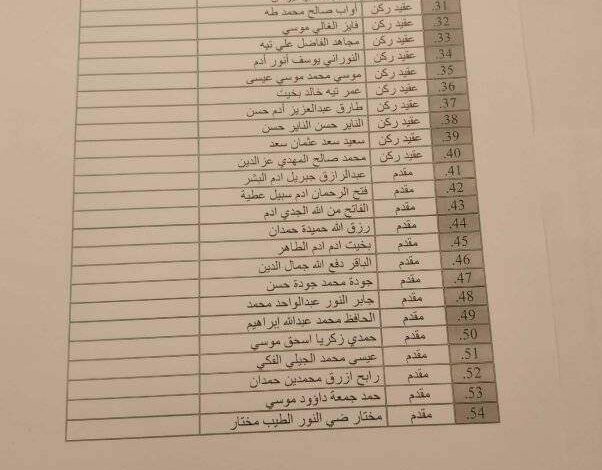 31. عقيد ركن أواب صالح محمد طه
32. عقيد ركن فايز الغالي موسي
33. عقيد ركن مجاهد الفاضل علي تيه
34. عقيد ركن النوراني يوسف أنور أدم
35. عقيد ركن موسي محمد موسي عيسى
36. عقيد ركن عمر تيه خالد بخيت
37. عقيد ركن طارق عبدالعزيز أدم حسن
38. عقيد ركن الناير حسن الناير حسن
39. عقيد ركن سعيد سعد عثمان سعد
40. عقيد ركن محمد صالح المهدي عزالدين
41. مقدم عبدالرازق جبريل ادم البشر
42. مقدم فتح الرحمان ادم سبيل عطية
43. مقدم الفاتح من الله الجدي ادم
44. مقدم رزق الله حميدة حمدان
45. مقدم بخيت ادم ادم الطاهر
46. مقدم الباقر دفع الله جمال الدين
47. مقدم جودة محمد جودة حسن
48. مقدم جابر النور عبدالواحد محمد
49. مقدم الحافظ محمد عبدالله إبراهيم
50. مقدم حمدي زكريا اسحق موسي
51. مقدم عيسى محمد الجيلي الفكي
52. مقدم رابح ازرق محمدين حمدان
53. مقدم حمد جمعة داؤود موسي
54. مقدم مختار ضي النور الطيب مختار